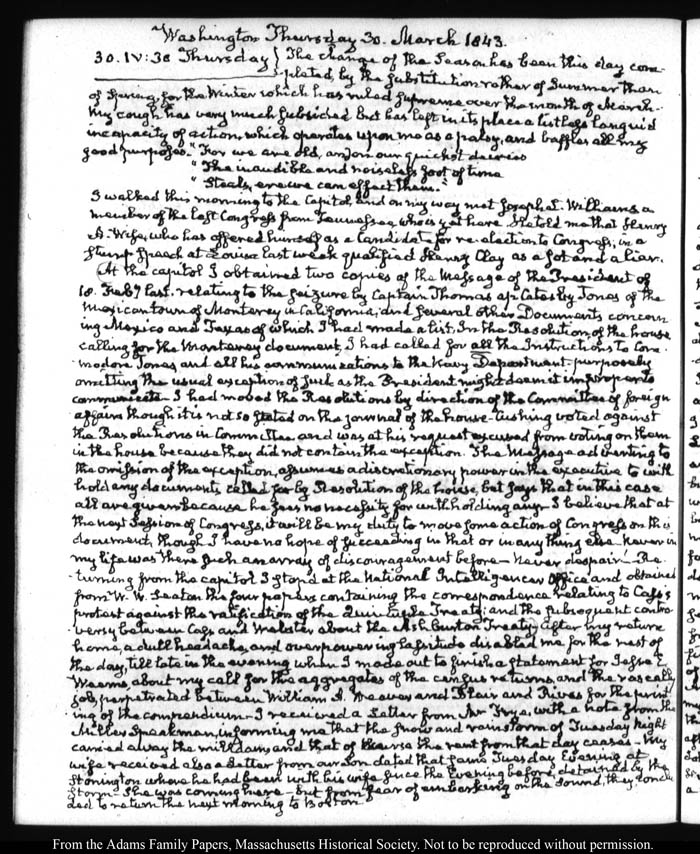 Washington Thursday 30. March 1843.
30. IV:30 Thursday } The change of the Season has been this day com-
pleted, by the substitution rather of Summer than
of Spring, for the Winter which has ruled supreme over the month of March.
My cough has very much subsided but has left in its place a listless languid
incapacity of action, which operates upon me as a palsy, and baffles all my
good purposes. "For we are old, and on our quickest decrees
" The inaudible and noiseless foot of time
" Steals, ere we can effect them."
I walked this morning to the Capitol, and on my way met Joseph L. Williams a
member of the last Congress from Tennessee, who is yet here. He told me that Henry
A. Wise, who has offered himself as a Candidate for re-election to Congress, in a
stump speech at Louisa last week qualified Henry Clay as a sot and a liar.
At the capitol I obtained two copies of the Message of the President of
18. Feby last, relating to the seizure by Captain Thomas ap Catesby Jones of the
Mexican town of Monterey in California; and several other Documents concern-
ing Mexico and Texas of which I had made a list. In the Resolution of the house
calling for the Monterey document, I had called for all the Instructions to Com-
modore Jones, and all his communications to the Navy Department purposely
omitting the usual exception of such as the President might deem it improper to
communicate. I had moved the Resolutions by direction of the Committee of foreign
affairs though it is not so stated on the journal of the house. Cushing voted against
the Resolutions in Committee and was at his request excused from voting on them
in the house because they did not contain the exception. The Message adverting to
the omission of the exception, assumes a discretionary power in the executive to with
hold any documents called for by Resolution of the house, but says that in this case
all are given because he sees no necessity for withholding any. I believe that at
the next Session of Congress, it will be my duty to move some action of Congress on this
document, though I have no hope of succeeding in that or in any thing else. Never in
my life was there such an array of discouragement before— Never despair! Re-
turning from the capitol I stop'd at the National Intelligencer Office and obtained
from W. W. Seaton the four papers containing the correspondence relating to Cass's
protest against the ratification of the Quintuple Treaty; and the subsequent contro-
versy between Cass and Webster about the Ashburton Treaty. After my return
home, a dull headache, and overpowering lassitude disabled me for the rest of
the day, till late in the evening when I made out to finish a statement for Jesse E.
Weems, about my call for the aggregates of the census returns, and the rascally
job, perpetrated between William A. Weaver and Blair and Rives for the print-
ing of the compendium— I received a Letter from Mr Frye, with a note from the
Miller Speakman, informing me that the snow and rain storm of Tuesday Night
carried away the milldam, and that of course the rent from that day ceases— My
wife received also a Letter from our Son dated that same Tuesday Evening at
Stonington where he had been with his wife since the Evening before, detained by the
storm— She was coming here— but from fear of embarking on the Sound, they conclu
ded to return the next morning to Boston.
From the Adams Family Papers, Massachusetts Historical Society. Not to be reproduced without permission.